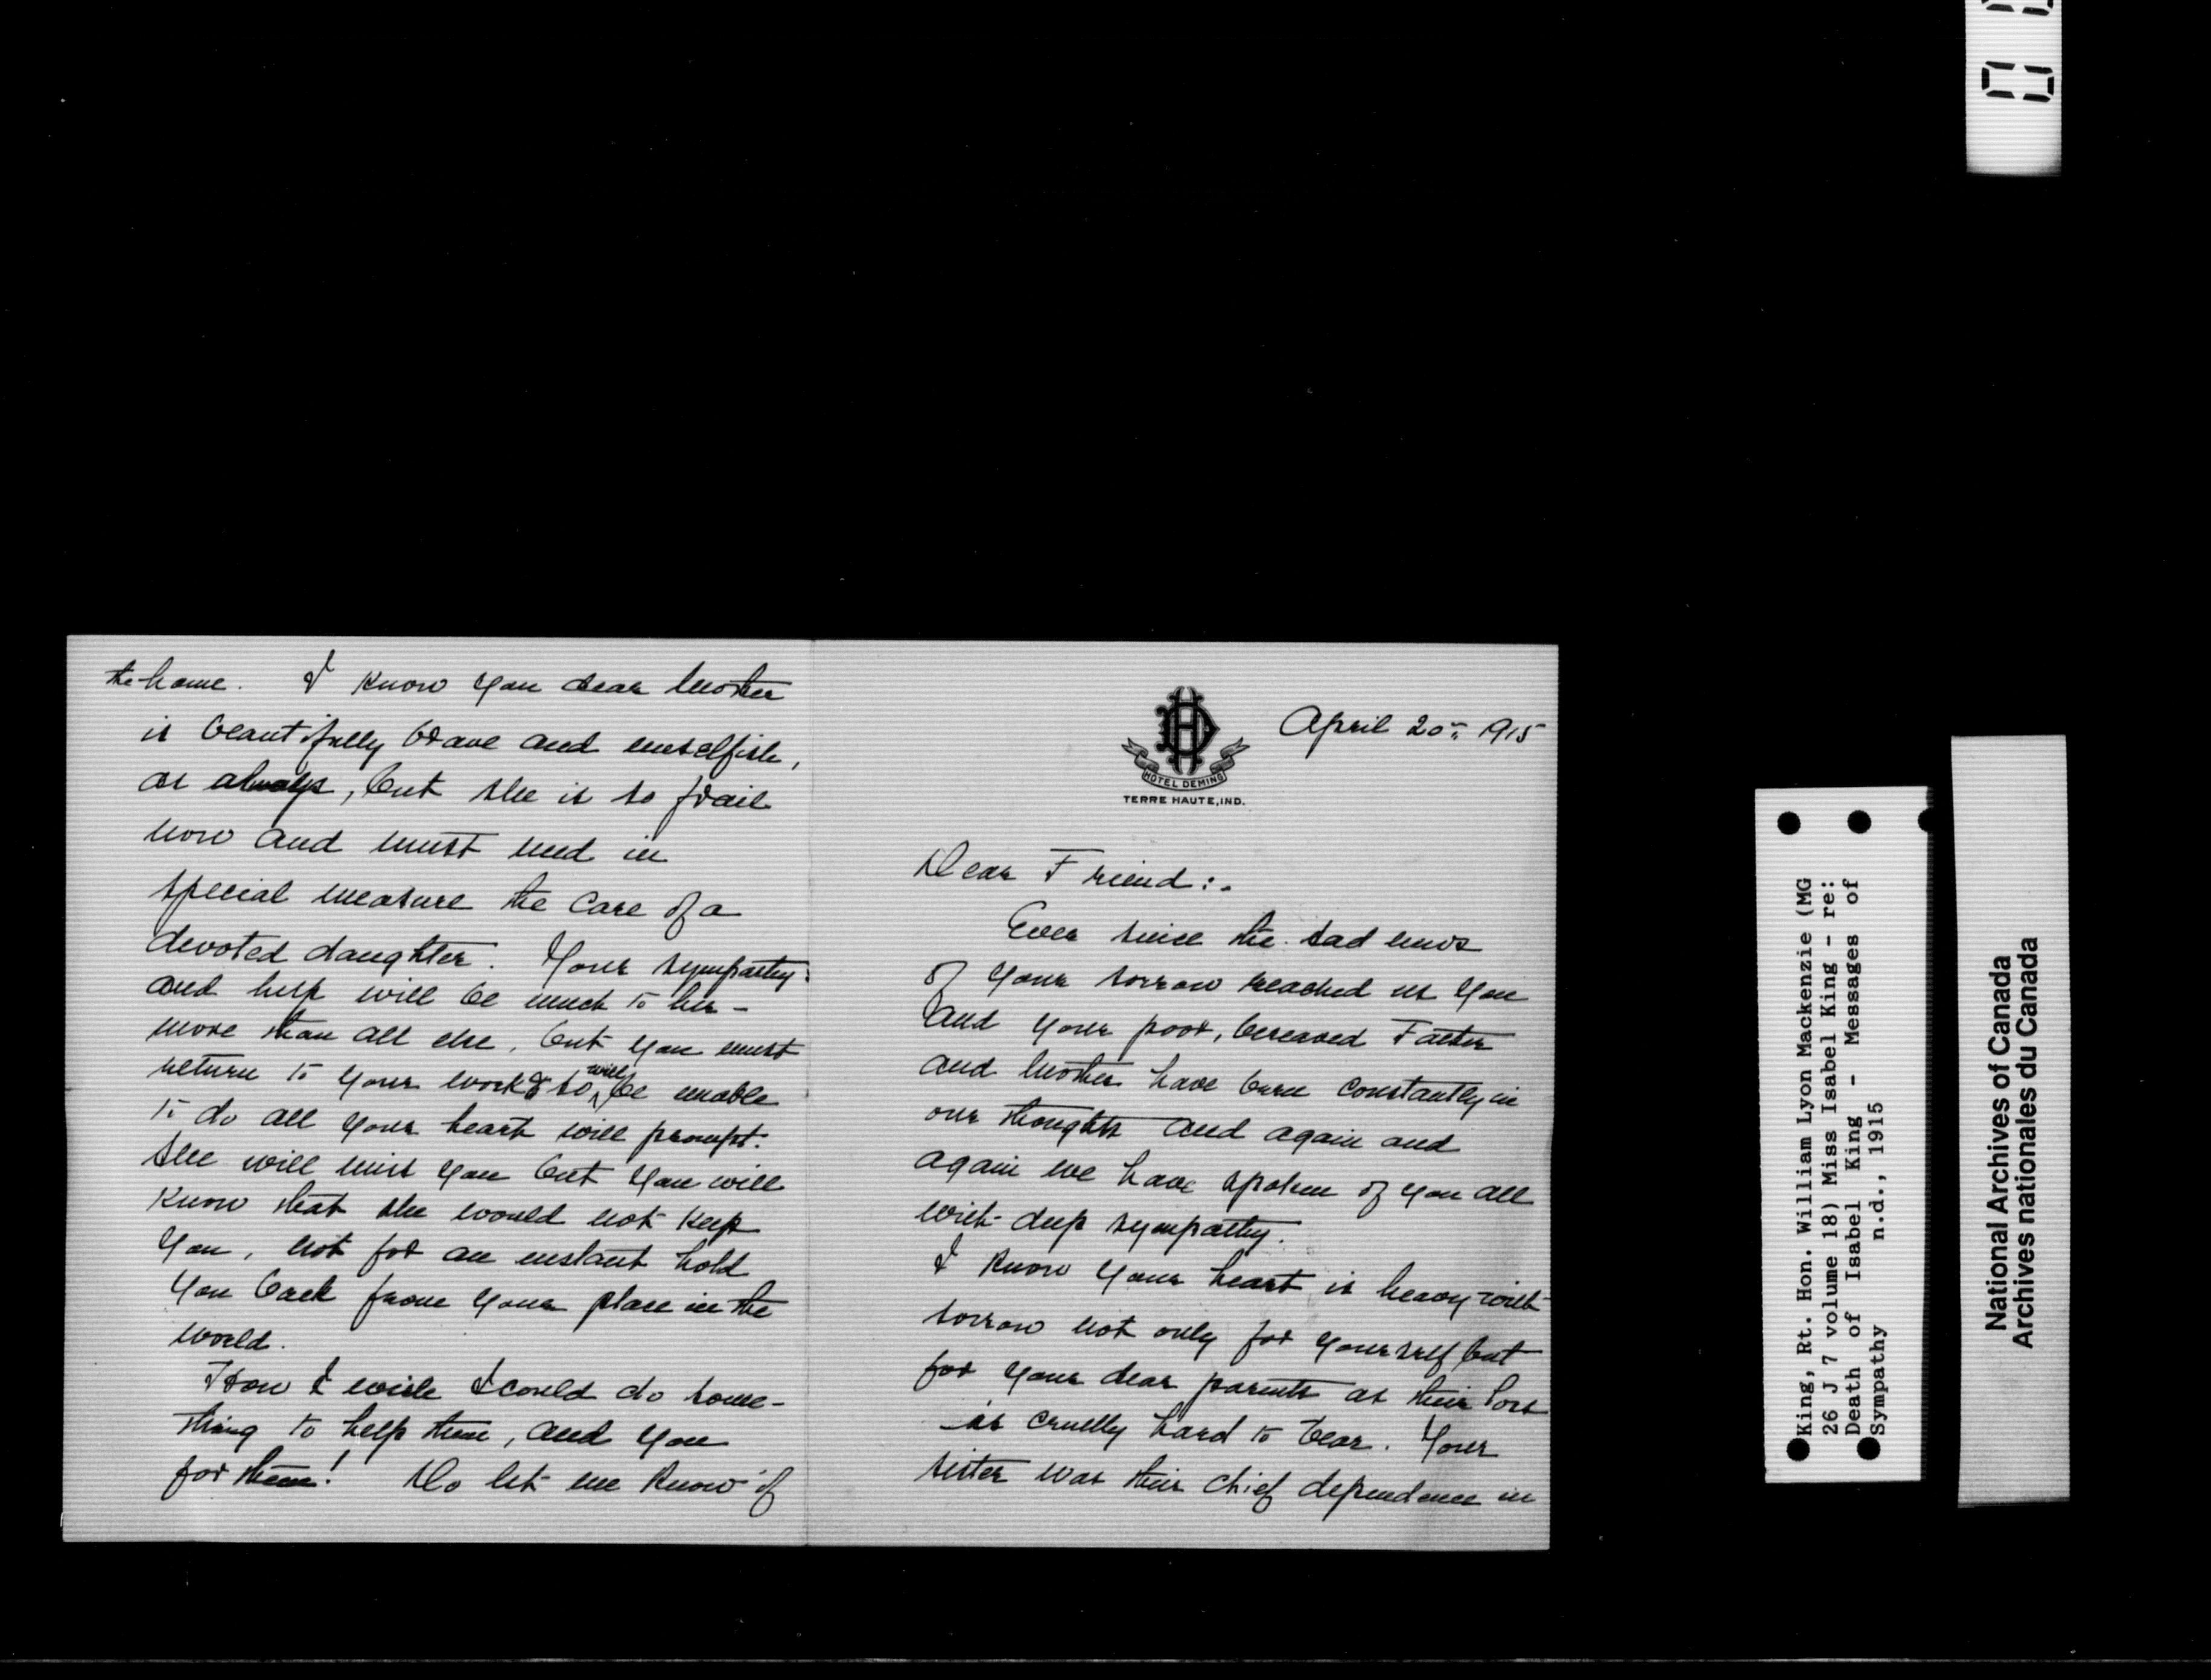 HOTEL DEMING
TERRE HAUTE, IND.
April 20th 1915
Dear Friend:-
Ever since the sad news
of your sorrow reached us you
and your poor, bereaved Father
and mother have been constantly in
our thoughts and again and
again we have spoken of you all
with deep sympathy.
I know your heart is heavy with
sorrow not only for yourself but
for your dear parents as their loss
is cruelly hard to bear. Your
sister was their chief dependence in
the home. I know you dear mother
is beautifully brave and unselfish,
as always, but she is so frail
now and must need in
special measure the care of a
devoted daughter. Your sympathy
and help will be much to her -
more than all else, but you must
return to your work & so will be unable
to do all your heart will prompt.
She will miss you but you will
know that she would not keep
you, not for an instant hold
you back from your place in the
world.
How I wish I could do some-
thing to help them, and you
for them! Do let me know if
King, Rt. Hon. William Lyon Mackenzie (MG
26 J 7 volume 18) Miss Isabel King - re:
Death of Isabel King - Messages of
Sympathy n.d., 1915
National Archives of Canada
Archives nationales du Canada